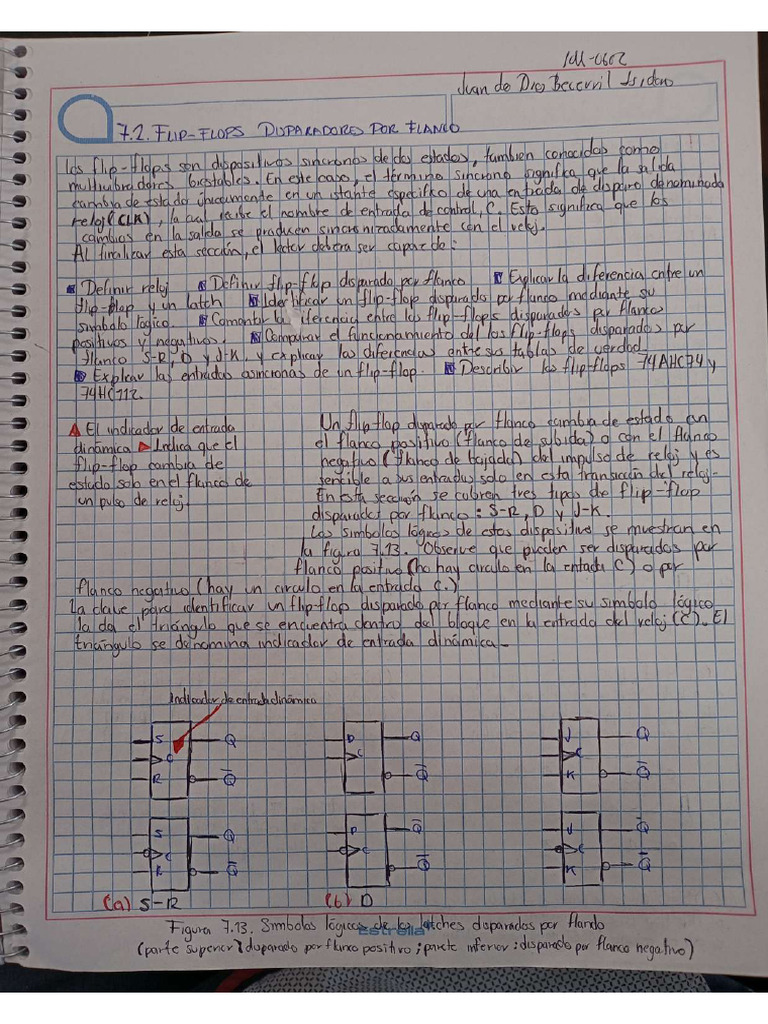 1M-0602
Juan de Dios Becerril Isidoro
7.2. FLIP-FLOPS DISPARADORES POR FLANCO
Los flip-flops son dispositivos sincronos de dos estados, tambien conocidos como
multivibradores biestables. En este caso, el término sincrono significa que la salida
cambia de estado únicamente en un stante especifko de una entrada de disparo denominada
reloj (CLK), la cual recibe el nombre de entrada de control, C. Esto significa que los
cambios en la salida se producen sincronizadamente con el reloj.
Al finalizar esta sección, el lector debera ser capaz de:
Definir reloj Definir flip-flop disparado por flanco Explicar la diferencia entre un
flip-flop y un latch Identificar un flip-flop disparado por flanco mediante su
simbolo lógico. Comentar la iferencia entre los flip-flops disparados por flancos
positivos y negativos. Comparar el funcionamiento del los flip-flops disparados por
flanco S-R, D y J-K y explicar las diferencias entre sus tablas de verdad
Explicar las entradas asincronas de un flip-flop. Describir los flip-flops 74AHC74 y
74HC112.
▲ El indicador de entrada
dinámica ▷ Indica que el
flip-flop cambia de
estado solo en el flanco de
un pulso de reloj.
Un flip flop disparado por flanco cambia de estado con
el flanco positivo (flanco de subida) o con el flanco
negativo (flanco de bajada) del impulso de reloj y es
sensible a sus entradas solo en esta transición del reloj-
En esta sección se cubren tres tipos de flip-flop
disparados por flanco: S-R, D y J-K.
Los simbolos lógicos de estos dispositivo se muestran en
la figura 7.13. Observe que pueden ser disparados por
flanco positivo (no hay circulo en la entada C) o por
flanco negativo (hay un circulo en la entrada C.)
La clave para identificar un flip-flop disparado por flanco mediante su simbolo lógico
la da el triángulo que se encuentra dentro del bloque en la entrada del reloj (C). El
triángulo se denomina indicador de entrada dinámica.
Indicador de entrada dinámico
S Q D Q J Q
C C C
R Q̅ Q̅ K Q̅
S Q D Q̅ J Q̅
C C C
R Q̅ Q̅ K Q̅
(a) S-R (b) D
Figura 7.13. Simbolos lógicos de los latches disparados por flando
Estrella
(parte superior) disparado por flanco positivo; parete inferior: disparado por flanco negativo)